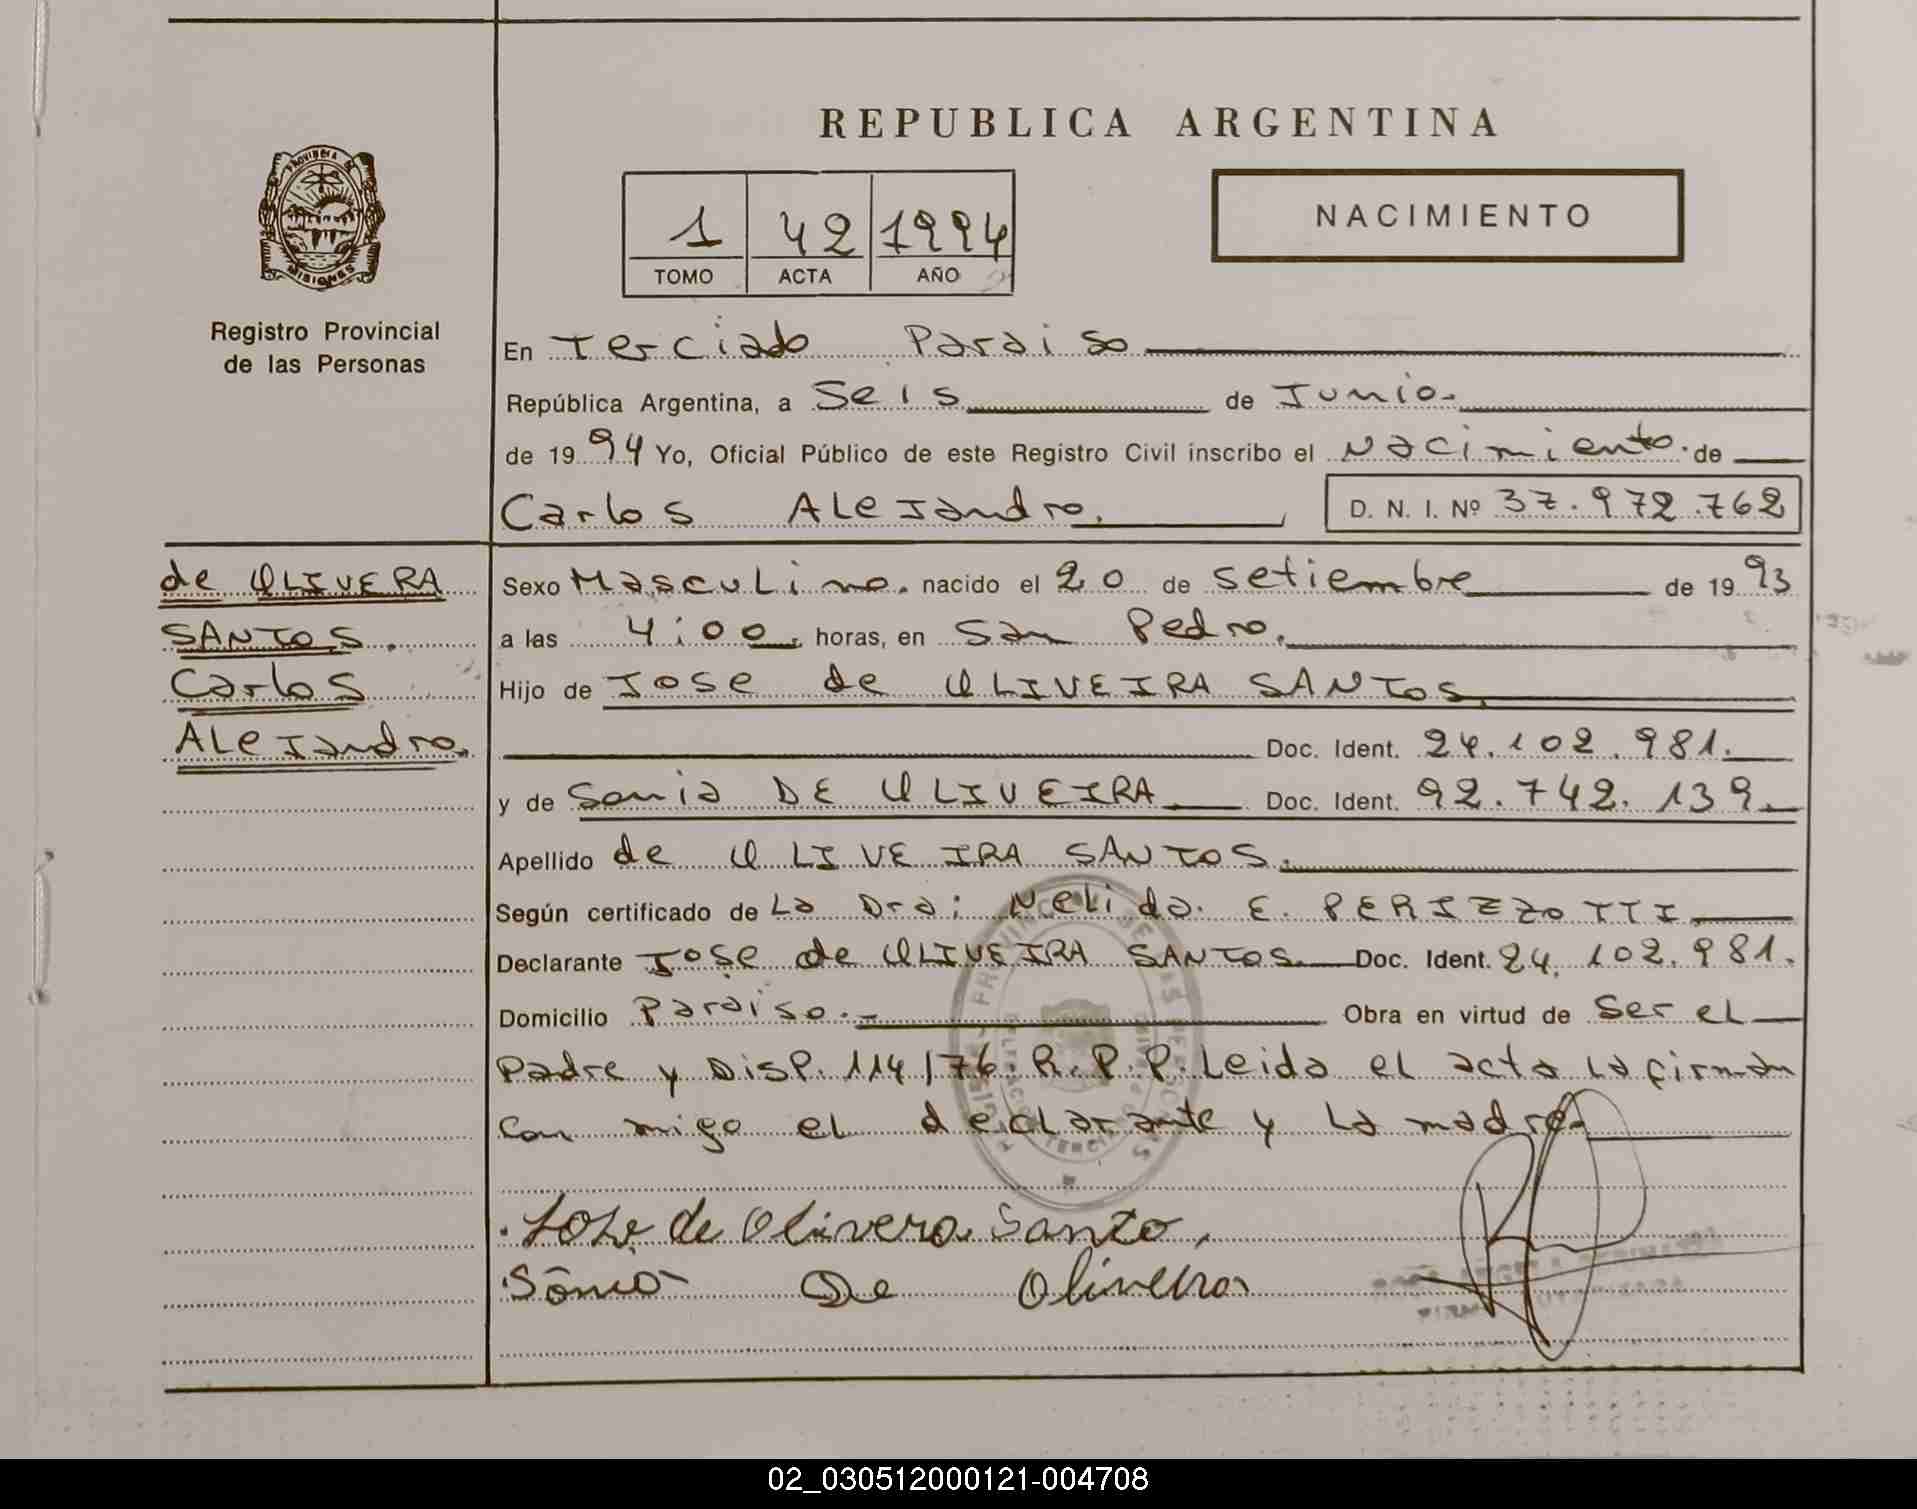 REPUBLICA ARGENTINA
PROVINCIA DE
MISIONES
Registro Provincial
de las Personas
1 42 1994
TOMO ACTA AÑO
NACIMIENTO
En Terciado Paraiso
República Argentina, a Seis de Junio.
de 1994 Yo, Oficial Público de este Registro Civil inscribo el Nacimiento. de
Carlos Alejandro. D. N. I. Nº 37.972.762
de OLIVERA
SANTOS.
Carlos
Alejandro.
Sexo Masculino. nacido el 20 de Setiembre de 1993
a las 4:00. horas, en San Pedro.
Hijo de Jose de OLIVEIRA SANTOS.
Doc. Ident. 24.102.981.
y de Sonia DE OLIVEIRA Doc. Ident. 92.742.139
Apellido de OLIVEIRA SANTOS.
Según certificado de La Dra: Nelida. E. PERIZZOTTI
Declarante Jose de OLIVEIRA SANTOS. Doc. Ident. 24.102.981.
Domicilio Paraiso.- Obra en virtud de Ser el
Padre y Disp. 114/76. R.P.P. Leida el acta la firman
con migo el declarante y la madre.
Jose de Olivera Santo,
Sônia De Oliveira
02_030512000121-004708